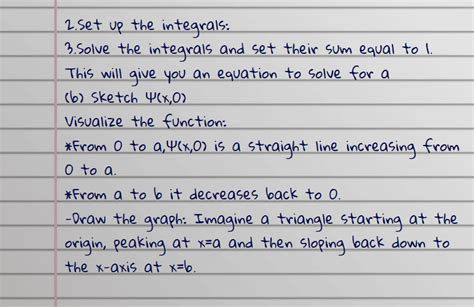 2.Set up the integrals:
3.Solve the integrals and set their sum equal to 1.
This will give you an equation to solve for a
(b) Sketch Ψ(x,0)
Visualize the function:
*From 0 to a,Ψ(x,0) is a straight line increasing from
0 to a.
*From a to b it decreases back to 0.
-Draw the graph: Imagine a triangle starting at the
origin, peaking at x=a and then sloping back down to
the x-axis at x=b.